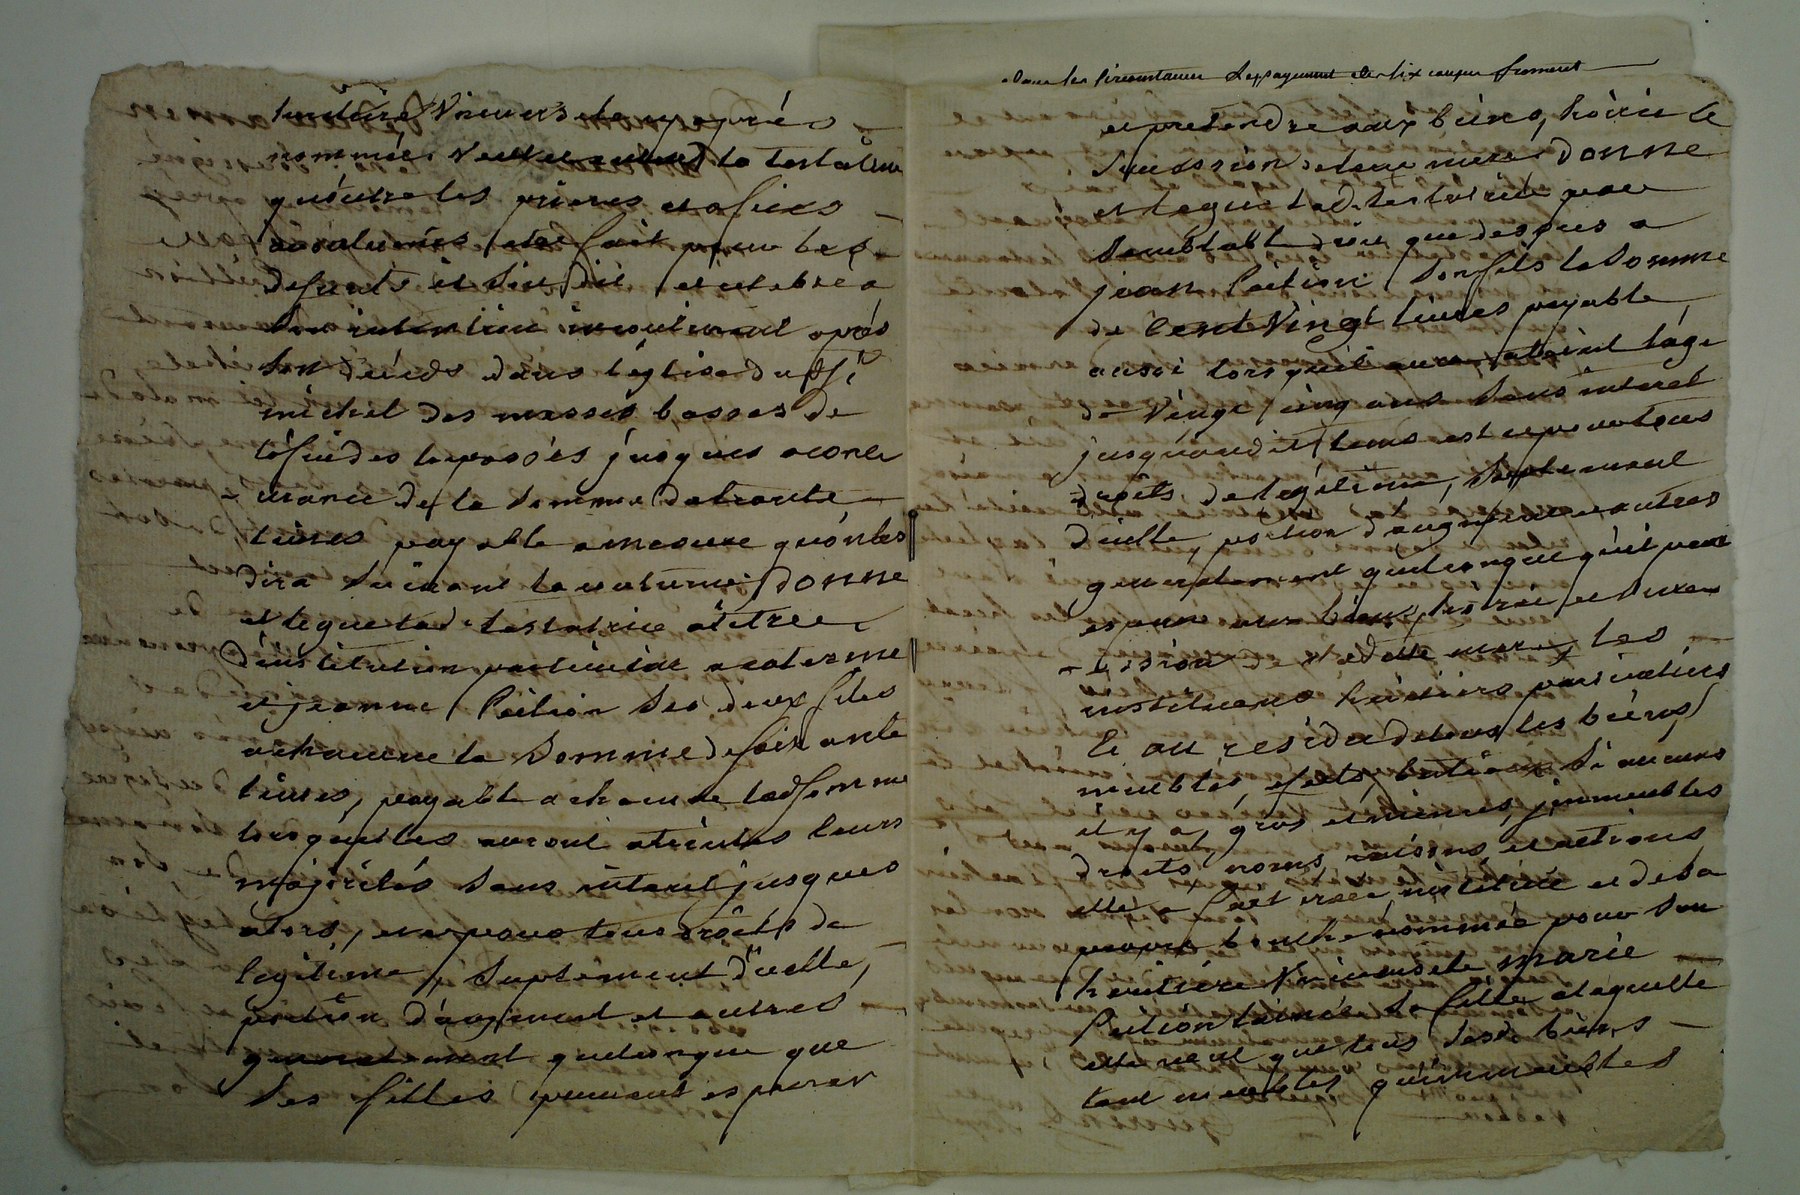 nommée veut et entend la testatrice
qu'outre les prieres et ofices
acoutumés etre fait pour les
defunts il soit dit et celebré a
son intention incontinent aprés
son décés dans l'églize dud St
michel des messes basses de
jusques a concu
-urance de la somme de trante
livres payable a mesure qu'on les
dira suivant la coutume, donne
et legue lad. testatrice a titre
d'institution particuliere a caterine
et jeanne Pætion ses deux filles
a chacune la somme de soixante
livres, payable a chacune lad somme
lorsqu'elles auront ateintes leurs
majorités sans interet jusques
alors, et ce pour tous droits de
legitime, suplément d'icelle,
portion d'augment et autres
generalement quelconque que
ses filles peuvent esperer
dans les circonstances de six coupes froment
et pretendre aux biens, hoirie et
sucession de leur mere donne
et legue lad. testatrice pour
semblable droit que dessus a
jean Pætion son fils la somme
de Cent Vingt livres payable
aussi lorsqu'il aura ateint l'age
de vingt cinq ans sans interet
jusqu'audit tems et ce pour tous
droits de legitime, suplement
d'icelle portion d'augment et autres
generalement quelconque qu'il peut
esperer aux biens, hoirie et succe
-ssion de sad. mere, les
instituant héritiers particuliers
Et au residu de tous les biens,
meubles, efets, betiaux si aucuns
il y a, gros et menus, immeubles
droits noms, raisons et actions
elle a fait créé, institué et de sa
propre bouche nommée pour son
heritiere Universele, marie
Pætion l'ainée sa fille, a laquelle
elle veut que tous sesd. biens
tant meubles qu'immeubles